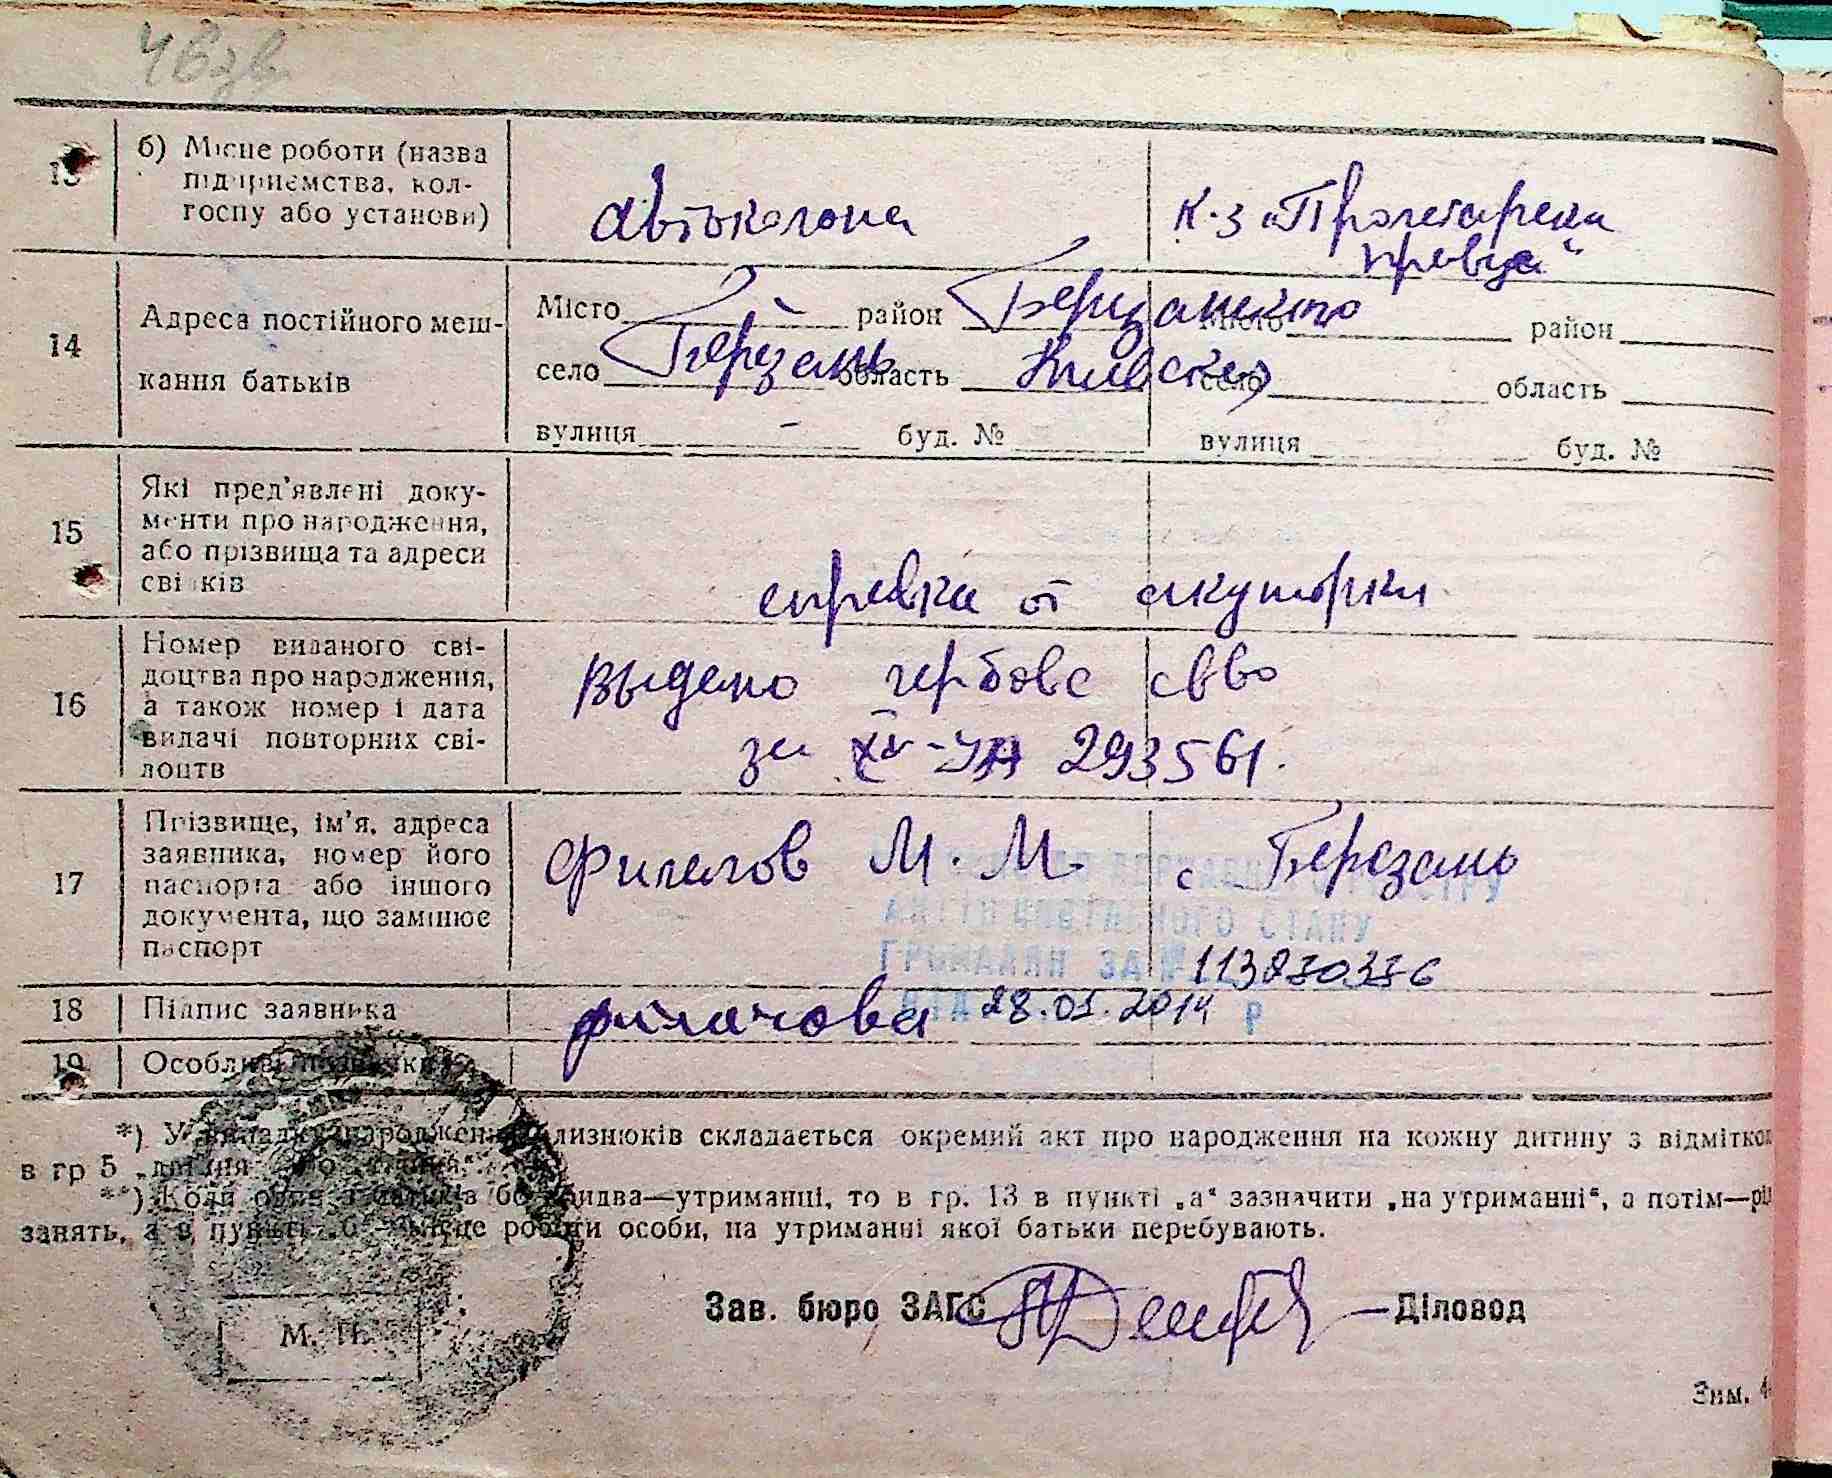 13
б) Місце роботи (назва
підприємства, кол-
госпу або установи)
автоколона
к-з „Пролетарська
правда“
14
Адреса постійного меш-
кання батьків
Місто - район Березанського
село Березань область Київської
вулиця - буд. №
Місто район
село область
вулиця буд. №
15
Які пред'явлені доку-
менти про народження,
або прізвища та адреси
свідків
справка от акушорки
16
Номер виданого сві-
доцтва про народження,
а також номер і дата
видачі повторних сві-
доцтв
Выдано гербове св-во
за -УА 293561.
17
Прізвище, ім'я, адреса
заявника, номер його
паспорта або іншого
документа, що замінює
паспорт
М. М. с Березань
ДЕРЖАВНОГО РЕЄСТРУ
АКТІВ ЦИВІЛЬНОГО СТАНУ
ГРОМАДЯН ЗА №
18
Підпис заявника
ВІД 28.01.2014 Р
19
Особливі позначки
*) У випадку народження близнюків складається окремий акт про народження на кожну дитину з відміткою
в гр 5 „двійня або трійня“.
**) Коли один з батьків або обидва—утриманці, то в гр. 13 в пункті „а“ зазначити „на утриманні“, а потім—рід
занять, а в пункті „б“—місце роботи особи, на утриманні якої батьки перебувають.
Зав. бюро ЗАГС —Діловод
М. П.
Зим.